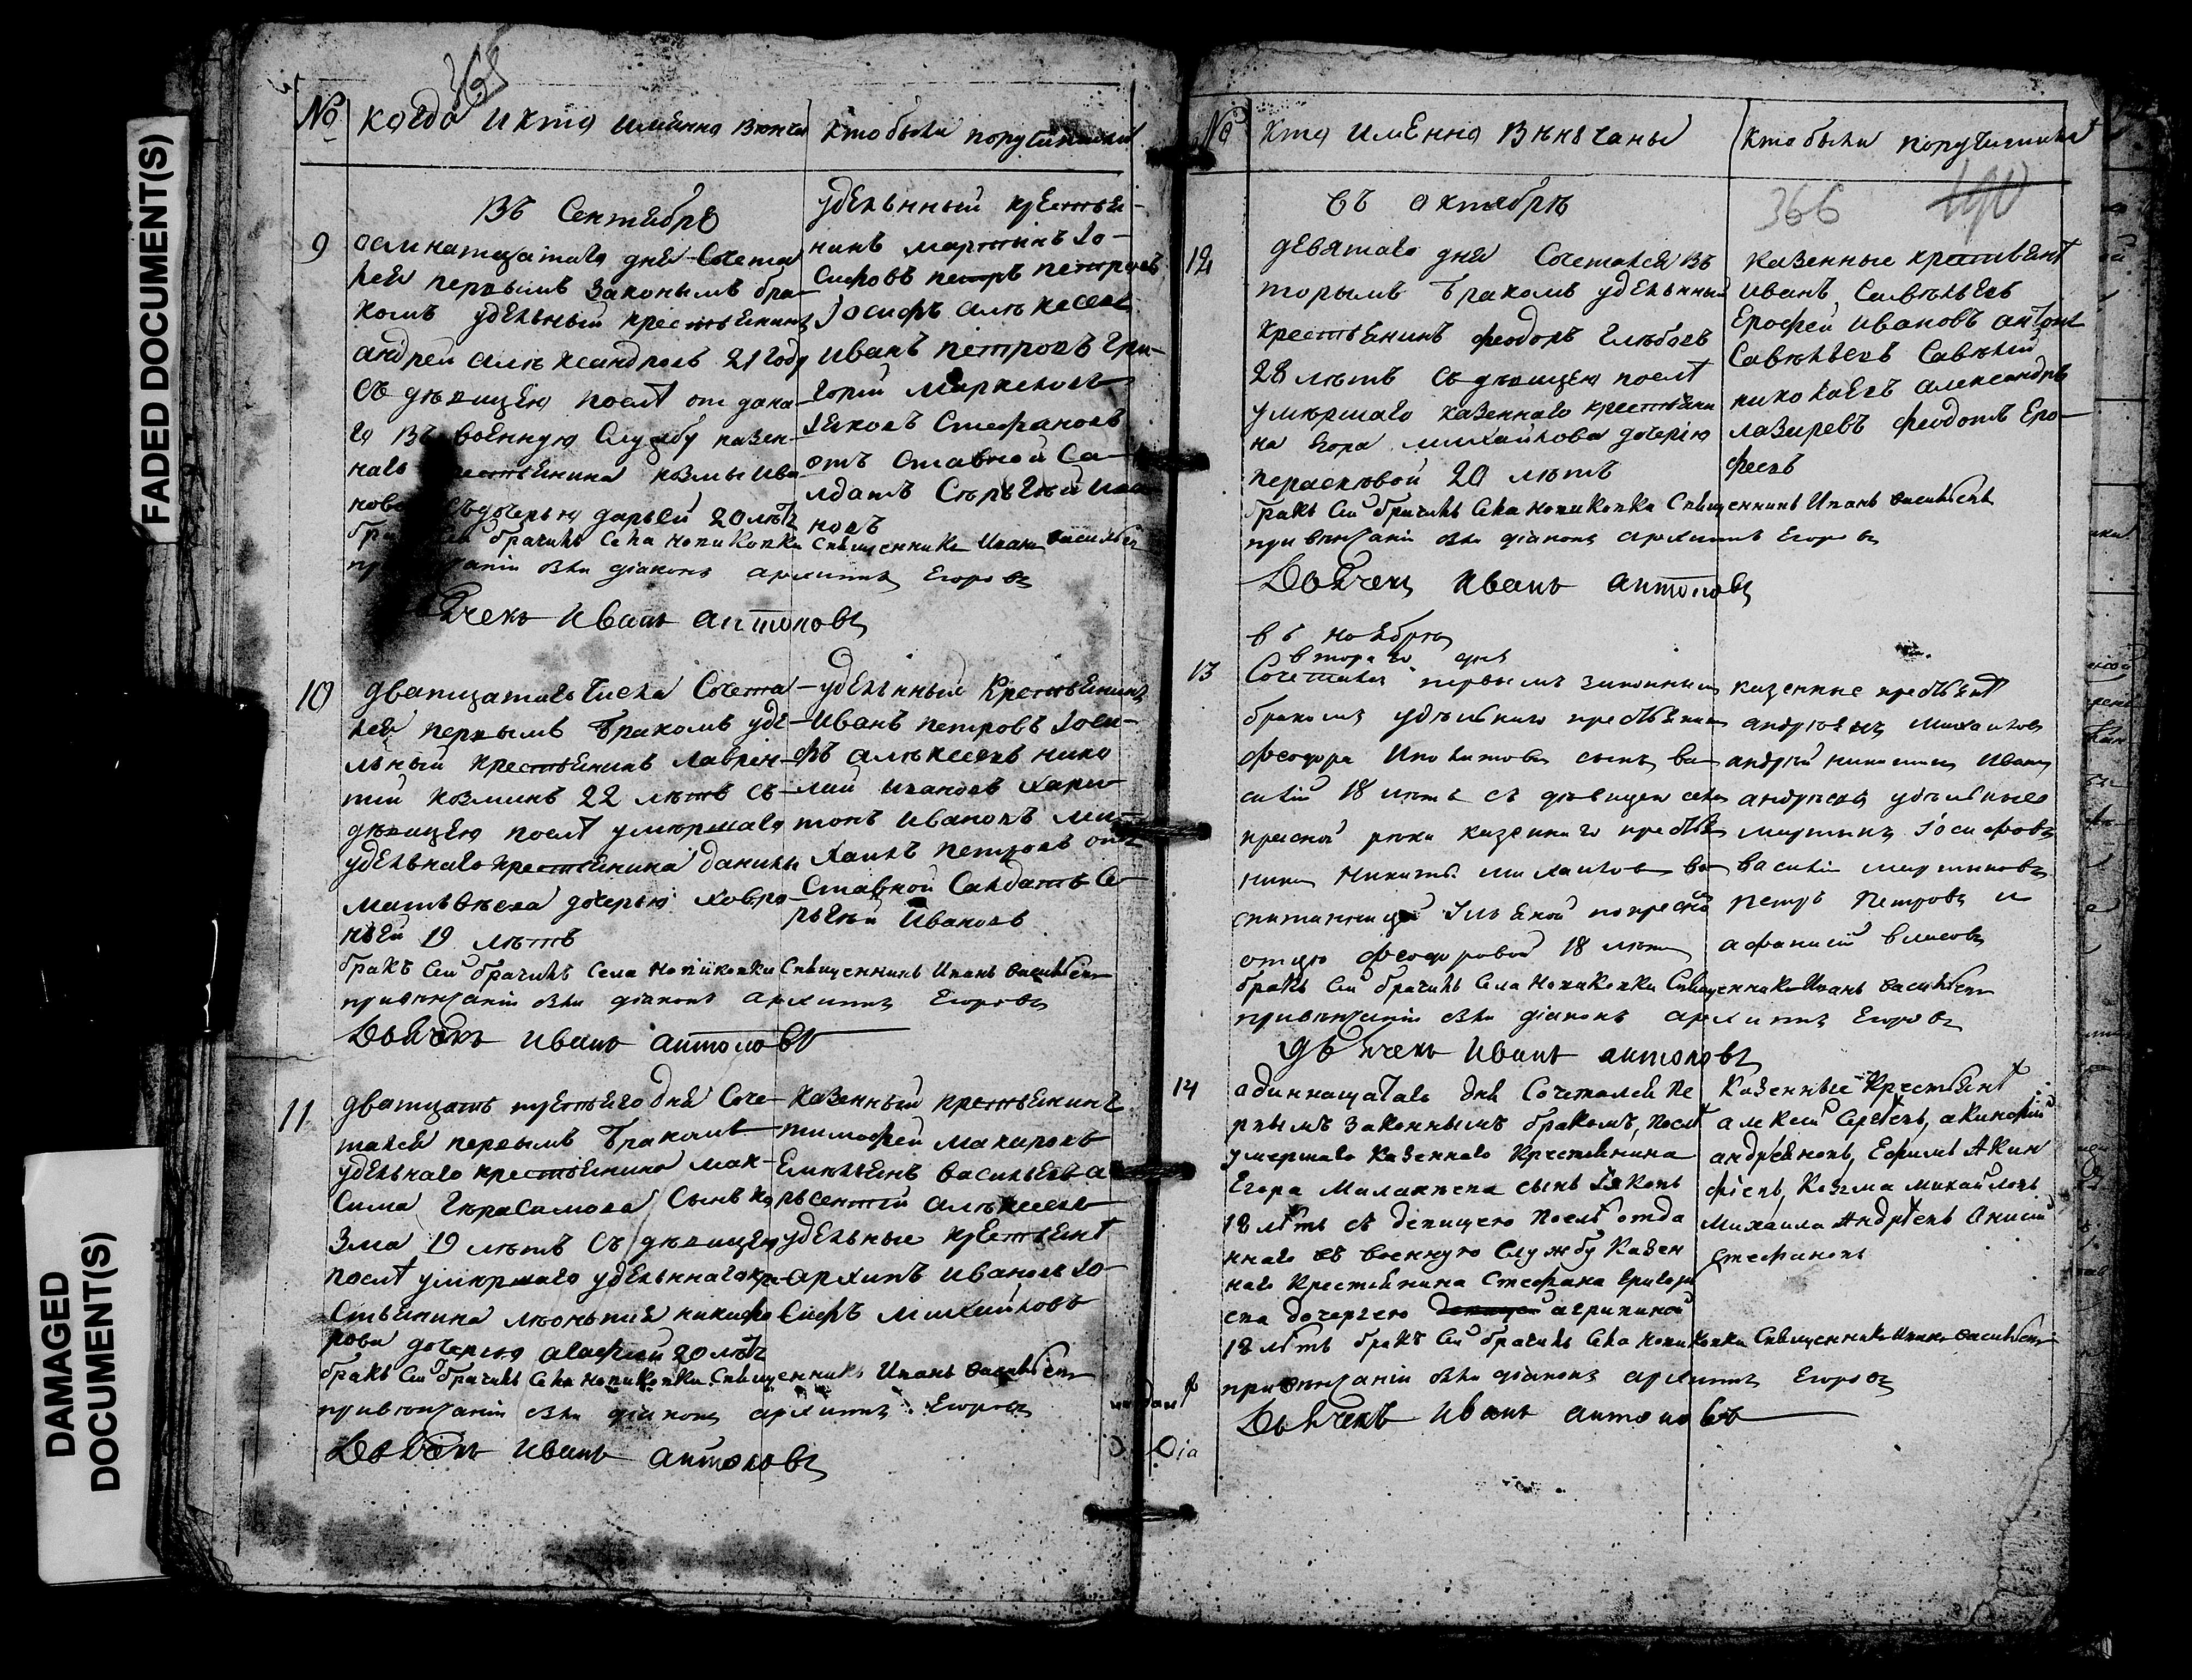 FADED DOCUMENT(S)
DAMAGED
DOCUMENT(S)
365
№ когда и кто имЕнно вѣнчан
кто были поручители
въ Сентябрѣ
9
осминатцатаго дня Сочета
лся первымъ законымъ бра
комъ удѣльный крестьянинъ
андрей алѣксандровъ 21 году
Съ дѣвицею послѣ от дана
го въ военную Службу казен
наго крестьянина козмы Ива
нова дочерью дарьей 20 лѣтъ
бракъ Сей брачилъ Села новиковки Священникъ Иванъ васильевъ
при вѣнчаніи были діаконъ архиппъ Егоровъ
Дьячекъ Иванъ антоновъ
удѣльный крестья-
нинъ мартинъ Іо-
сифовъ петръ петровъ
Іосифъ алѣксеевъ
иванъ петровъ гри-
горій маркеловъ
яковъ Стефановъ
отъ Ставной Са-
лдатъ Сѣргѣй ива
новъ
10
дватцатаго числа Сочета
лся первымъ бракомъ удѣ
льный крестьянинъ лаврен
тій козминъ 22 лѣтъ съ
дѣвицею послѣ умѣршаго
удѣльнаго крестьянина данилы
матвѣева дочерью ховро
ньей 19 лѣтъ
бракъ Сей брачилъ Села новиковки Священникъ Иванъ васильевъ
привѣнчаніи были діаконъ архиппъ Егоровъ
Дьячекъ иванъ антоновъ
удѣльные крестьянинъ
Иванъ петровъ Іоси-
фъ алѣксеевъ нико
лай ивановъ хари
тонъ ивановъ ми-
хаилъ петровъ отъ
Ставной Салдатъ Се
ргѣй Ивановъ
11
дватцать третьяго дня Соче
тался первымъ бракомъ
удѣльнаго крестьянина мак-
Сима герасимова Сынъ ко
зма 19 лѣтъ Съ дѣвицею
послѣ умѣршаго удѣльннаго кре
стьянина лѣонътия никифо
рова дочерью агафьей 20 лѣтъ
бракъ Сей брачилъ Села новиковки Священникъ Иванъ васильевъ
привѣнчаніи были діаконъ архиппъ Егоровъ
Дьячекъ иванъ антоновъ
казенный крестьянинъ
тимофей макаровъ
Емѣльянъ васильевъ а
рьсентій алѣксеевъ
удѣльные крестьянѣ
архипъ ивановъ Іо-
Сифъ михайловъ
№ кто имЕнно вѣнчаны
кто были поручители
366
190
въ октябрѣ
12
девятаго дня Сочетался въ
торымъ бракомъ удѣльный
крестьянинъ феодоръ глѣбовъ
28 лѣтъ Съ дѣвицею послѣ
умѣршаго казеннаго крестьяни
на Егора михайлова дочерію
персковой 20 лѣтъ
бракъ Сей брачилъ Села новиковки Священникъ Иванъ васильевъ
при вѣнчаніи были діаконъ архиппъ Егоровъ
Дьячекъ Иванъ антоновъ
казенные крестьянѣ
иванъ Савѣльевъ
Ерофей ивановъ антонъ
Савѣльевъ Савѣлій
николаевъ александръ
лазаревъ феодотъ Еро-
феевъ
въ ноябрѣ
втораго дня
13
Сочетался первымъ законнымъ
бракомъ удѣльнаго крестьянина
феодора Иполитова сынъ ва
силій 18 лѣтъ съ дѣвицею села
красной рѣки казеннаго крестья
нина Никиты михайлова во
спитанницей Ульяной по крестно
отцю Феодоровой 18 лѣтъ
бракъ Сей брачилъ Села Новиковки Священникъ Иванъ васильевъ
привѣнчаніи были діаконъ архиппъ Егоровъ
Дьячекъ Иванъ антоновъ
казенные крестьянѣ
андрѣянъ Михаиловъ
андрѣй никитинъ Иванъ
андрѣевъ удѣльные
мартинъ Іосифовъ
василій мартиновъ
Петръ Петровъ и
афанасій власовъ
14
одиннацатаго дня Сочетался пе
рвымъ законнымъ бракомъ, послѣ
умершаго казеннаго крестьянина
Егора Малафѣева сынъ Яковъ
18 лѣтъ съ девицею послѣ отда
ннаго въ военную Службу казен
наго крестьянина Стефана Григорь
ева дочерью девицей агрипиной
18 лѣтъ бракъ Сей брачилъ Села новиковки Священникъ Иванъ васильевъ
привѣнчаніи были діаконъ архиппъ Егоровъ
Дьячекъ Иванъ антоновъ
Казенные Крестьянѣ
алексѣй Сергѣевъ, акинфій
андрѣяновъ, Ефимъ Акин
фіевъ, Козма михайловъ
Михаила Андрѣевъ Анисим
стефановъ